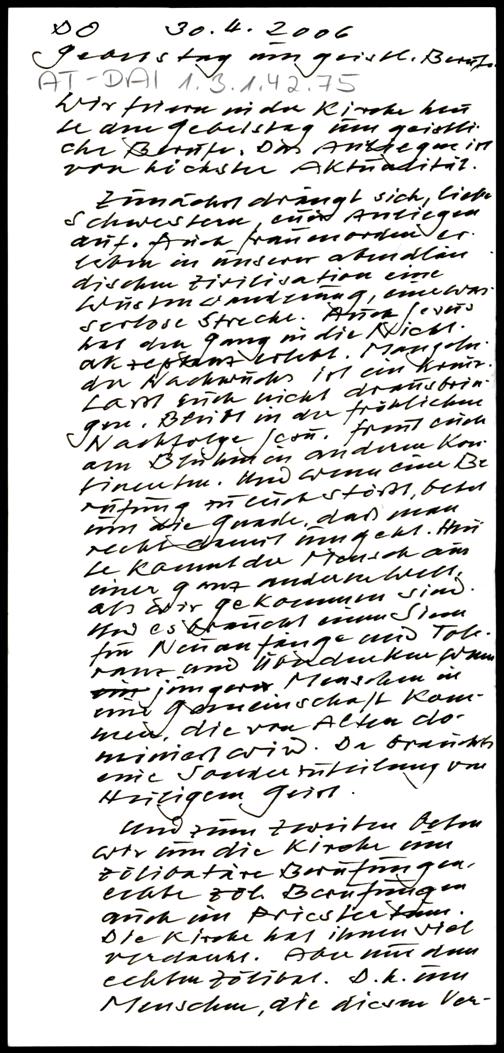 DO 30.4.2006
Gebetstag um geistl. Berufe.
AT-DAI 1.3.1.42.75
Wir feiern in der Kirche heu
te den Gebetstag um geistli-
che Berufe. Das Anliegen ist
von höchster Aktualität.
Zunächst drängt sich, liebe
Schwestern, euer Anliegen
auf. Auch Frauenorden er-
leben in unserer abendlän
dischen Zivilisation eine
Wüstenwanderung, eine was
serlose Strecke. Auch Jesus
hat den Gang in die Nicht-
akzeptanz erlebt. Mangeln-
der Nachwuchs ist ein Kreuz.
Lasst euch nicht drausbrin-
gen. Bleibt in der fröhlichen
Nachfolge Jesu. Freut euch
am Blühen in anderen Kon
tinenten. Und wenn eine Be
rufung zu euch stößt, betet
um die Gnade, daß man
recht damit umgeht. Heu
te kommt der Mensch aus
einer ganz anderen Welt,
als wir gekommen sind.
Und es braucht einen Sinn
für Neuanfänge und Tole-
ranz und Überdenken, wenn
junge Menschen in
eine Gemeinschaft kom-
men, die von Alten do-
miniert wird. Da brauchts
eine Sonderzuteilung von
Heiligem Geist.
Und zum Zweiten beten
wir um die Kirche um
zölibatäre Berufungen,
echte zöl. Berufungen
auch im Priestertum.
Die Kirche hat ihnen viel
verdankt. Aber nur dem
echten Zölibat. D.h. um
Menschen, die diesen Ver-